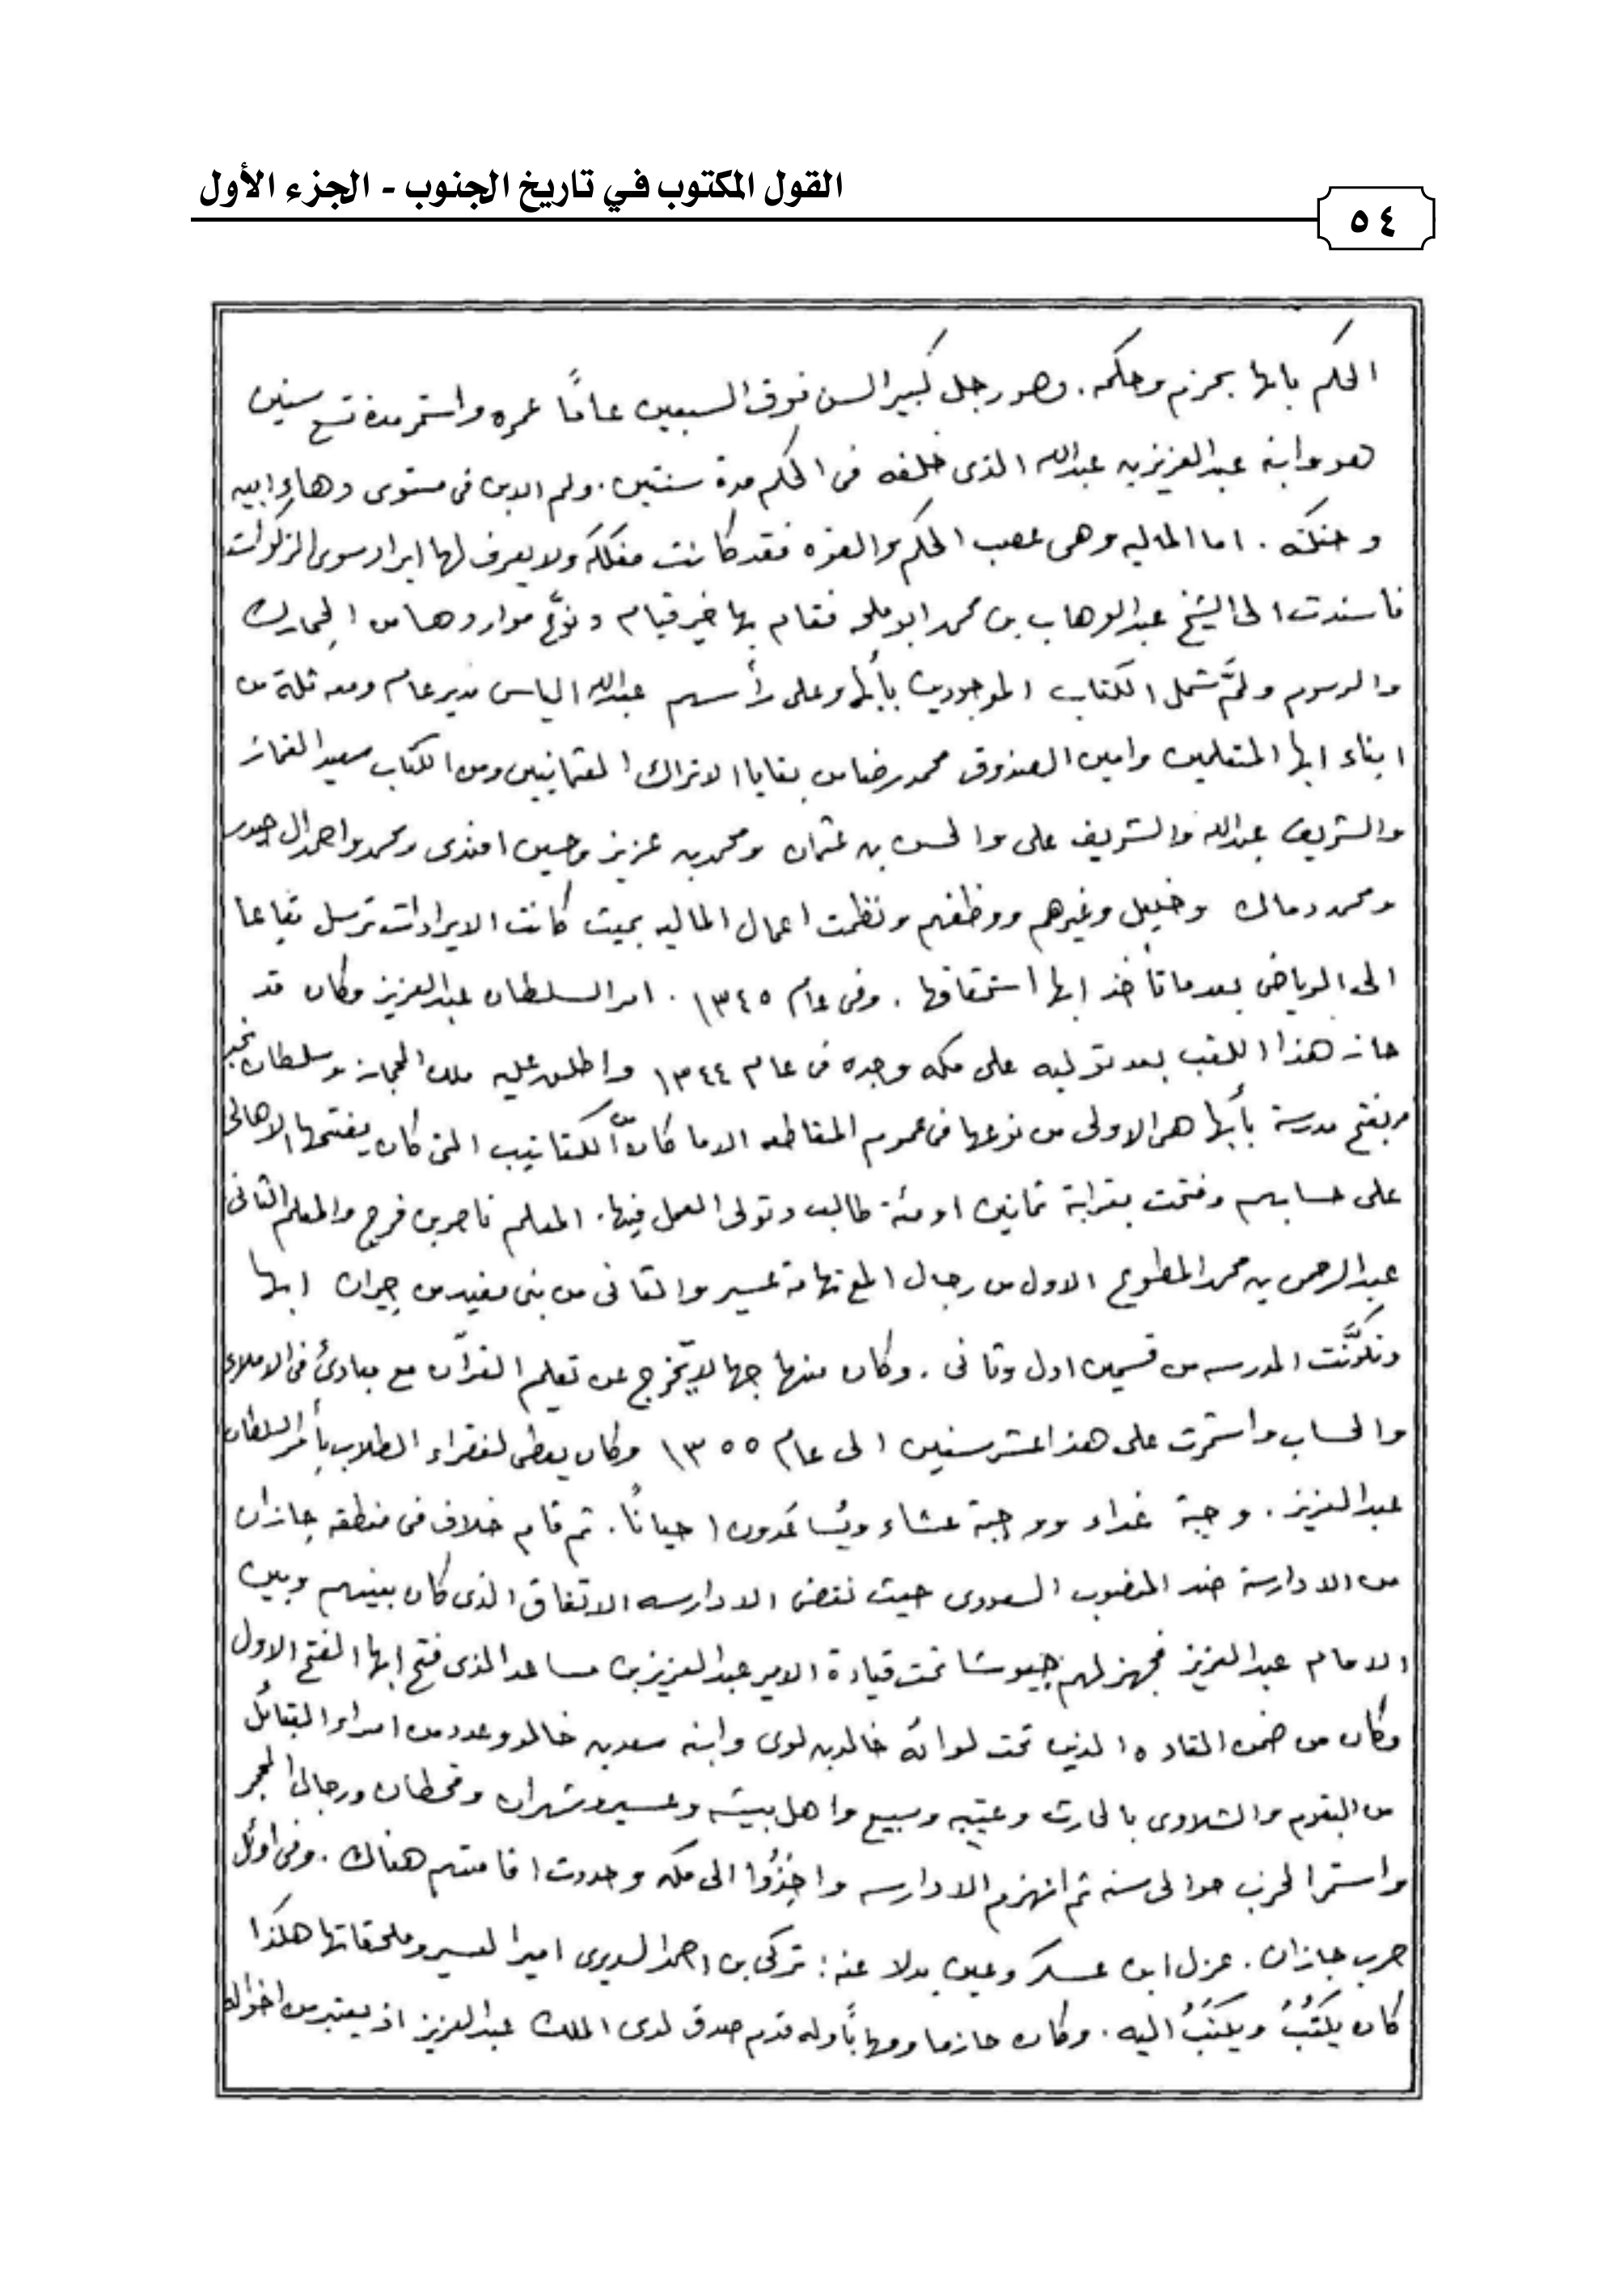 القول المكتوب في تاريخ الجنوب - الجزء الأول
٥٤
الحكم بابها بحزم وحكمه. وهو رجل كبير السن فوق السبعين عاماً عمره واستمر مدة تسع سنين
هو وابنه عبدالعزيز بن عبدالله الذى خلفه فى الحكم مدة سنتين. ولم الابن فى مستوى دهاء ابيه
وحنكته. اما الماليه وهى عصب الحكم والقوه فقد كانت مفككه ولا يعرف لها ايراد سوى الزكوات
فاسندت الى الشيخ عبدالوهاب بن محمد ابو ملحه فقام بها خير قيام ونوَّع مواردها من الجمارك
والرسوم ولمَّ شمل الكتاب الموجودين بأبها وعلى رأسهم عبدالله الياس مدير عام ومعه ثلة من
ابناء ابها المتعلمين وامين الصندوق محمد رضا من بقايا الاتراك العثمانيين ومن الكتاب سعيد الغماز
والشريف عبدالله والشريف على والحسن بن عثمان ومحمد بن عزيز وحسين افندى ومحمد واحمد ال حيدر
ومحمد دمالك وخليل وغيرهم ووظفهم ونظمت اعمال الماليه بحيث كانت الايرادات ترسل تباعا
الى الرياض بعد ما تأخذ ابها استحقاقها. وفى عام ١٣٤٥. امر السلطان عبدالعزيز وكان قد
حاز هذا اللقب بعد توليه على مكه وجده فى عام ١٣٤٤ واطلق عليه ملك الحجاز وسلطان نجد
مر بفتح مدرسة بأبها هى الاولى من نوعها فى عموم المقاطعه الا ما كان من الكتاتيب التى كان يفتحها الاهالى
على حسابهم وفتحت بقرابة ثمانين او مئة طالب وتولى العمل فيها. المعلم ناصر بن فرج والمعلم الثانى
عبدالرحمن بن محمد المطوع الاول من رجال المع تهامة عسير والثانى من بنى مفيد من جيران ابها
وتكوَّنت المدرسه من قسمين اول وثانى. وكان منهاجها لا يخرج عن تعلم القرآن مع مبادئ فى الاملاء
والحساب واستمرت على هذا عشر سنين الى عام ١٣٥٥ وكان يعطى لفقراء الطلاب بأمر السلطان
عبدالعزيز. وجبة غداء ووجبة عشاء ويُساعَدون احيانًا. ثم قام خلاف فى منطقه جازان
من الادارسة ضد المنصوب السعودى حيث نقض الادارسه الاتفاق الذى كان بينهم وبين
الامام عبدالعزيز فجهز لهم جيوشا تحت قيادة الامير عبدالعزيز بن مساعد الذى فتح ابها الفتح الاول
وكان من ضمن القاده الذين تحت لوائه خالد بن لوى وابنه سعد بن خالد وعدد من امراء القبائل
من البقوم والشلاوى بالحارث وعتيبه وسبيع واهل بيشه وعسير وشهران وقحطان ورجال الحجر
واستمر الحرب حوالى سنه ثم انهزم الادارسه واخِذُوا الى مكه وحددت اقامتهم هناك. وفى اوئل
حرب جازان. عزل ابن عسكر وعين بدلا عنه: تركى بن احمد السديرى اميرا لعسير وملحقاتها هكذا
كان يكتُبُ ويكتَبُ اليه. وكان حازما ومهابًا وله قدم صدق لدى الملك عبدالعزيز اذ يعتبر من اخواله